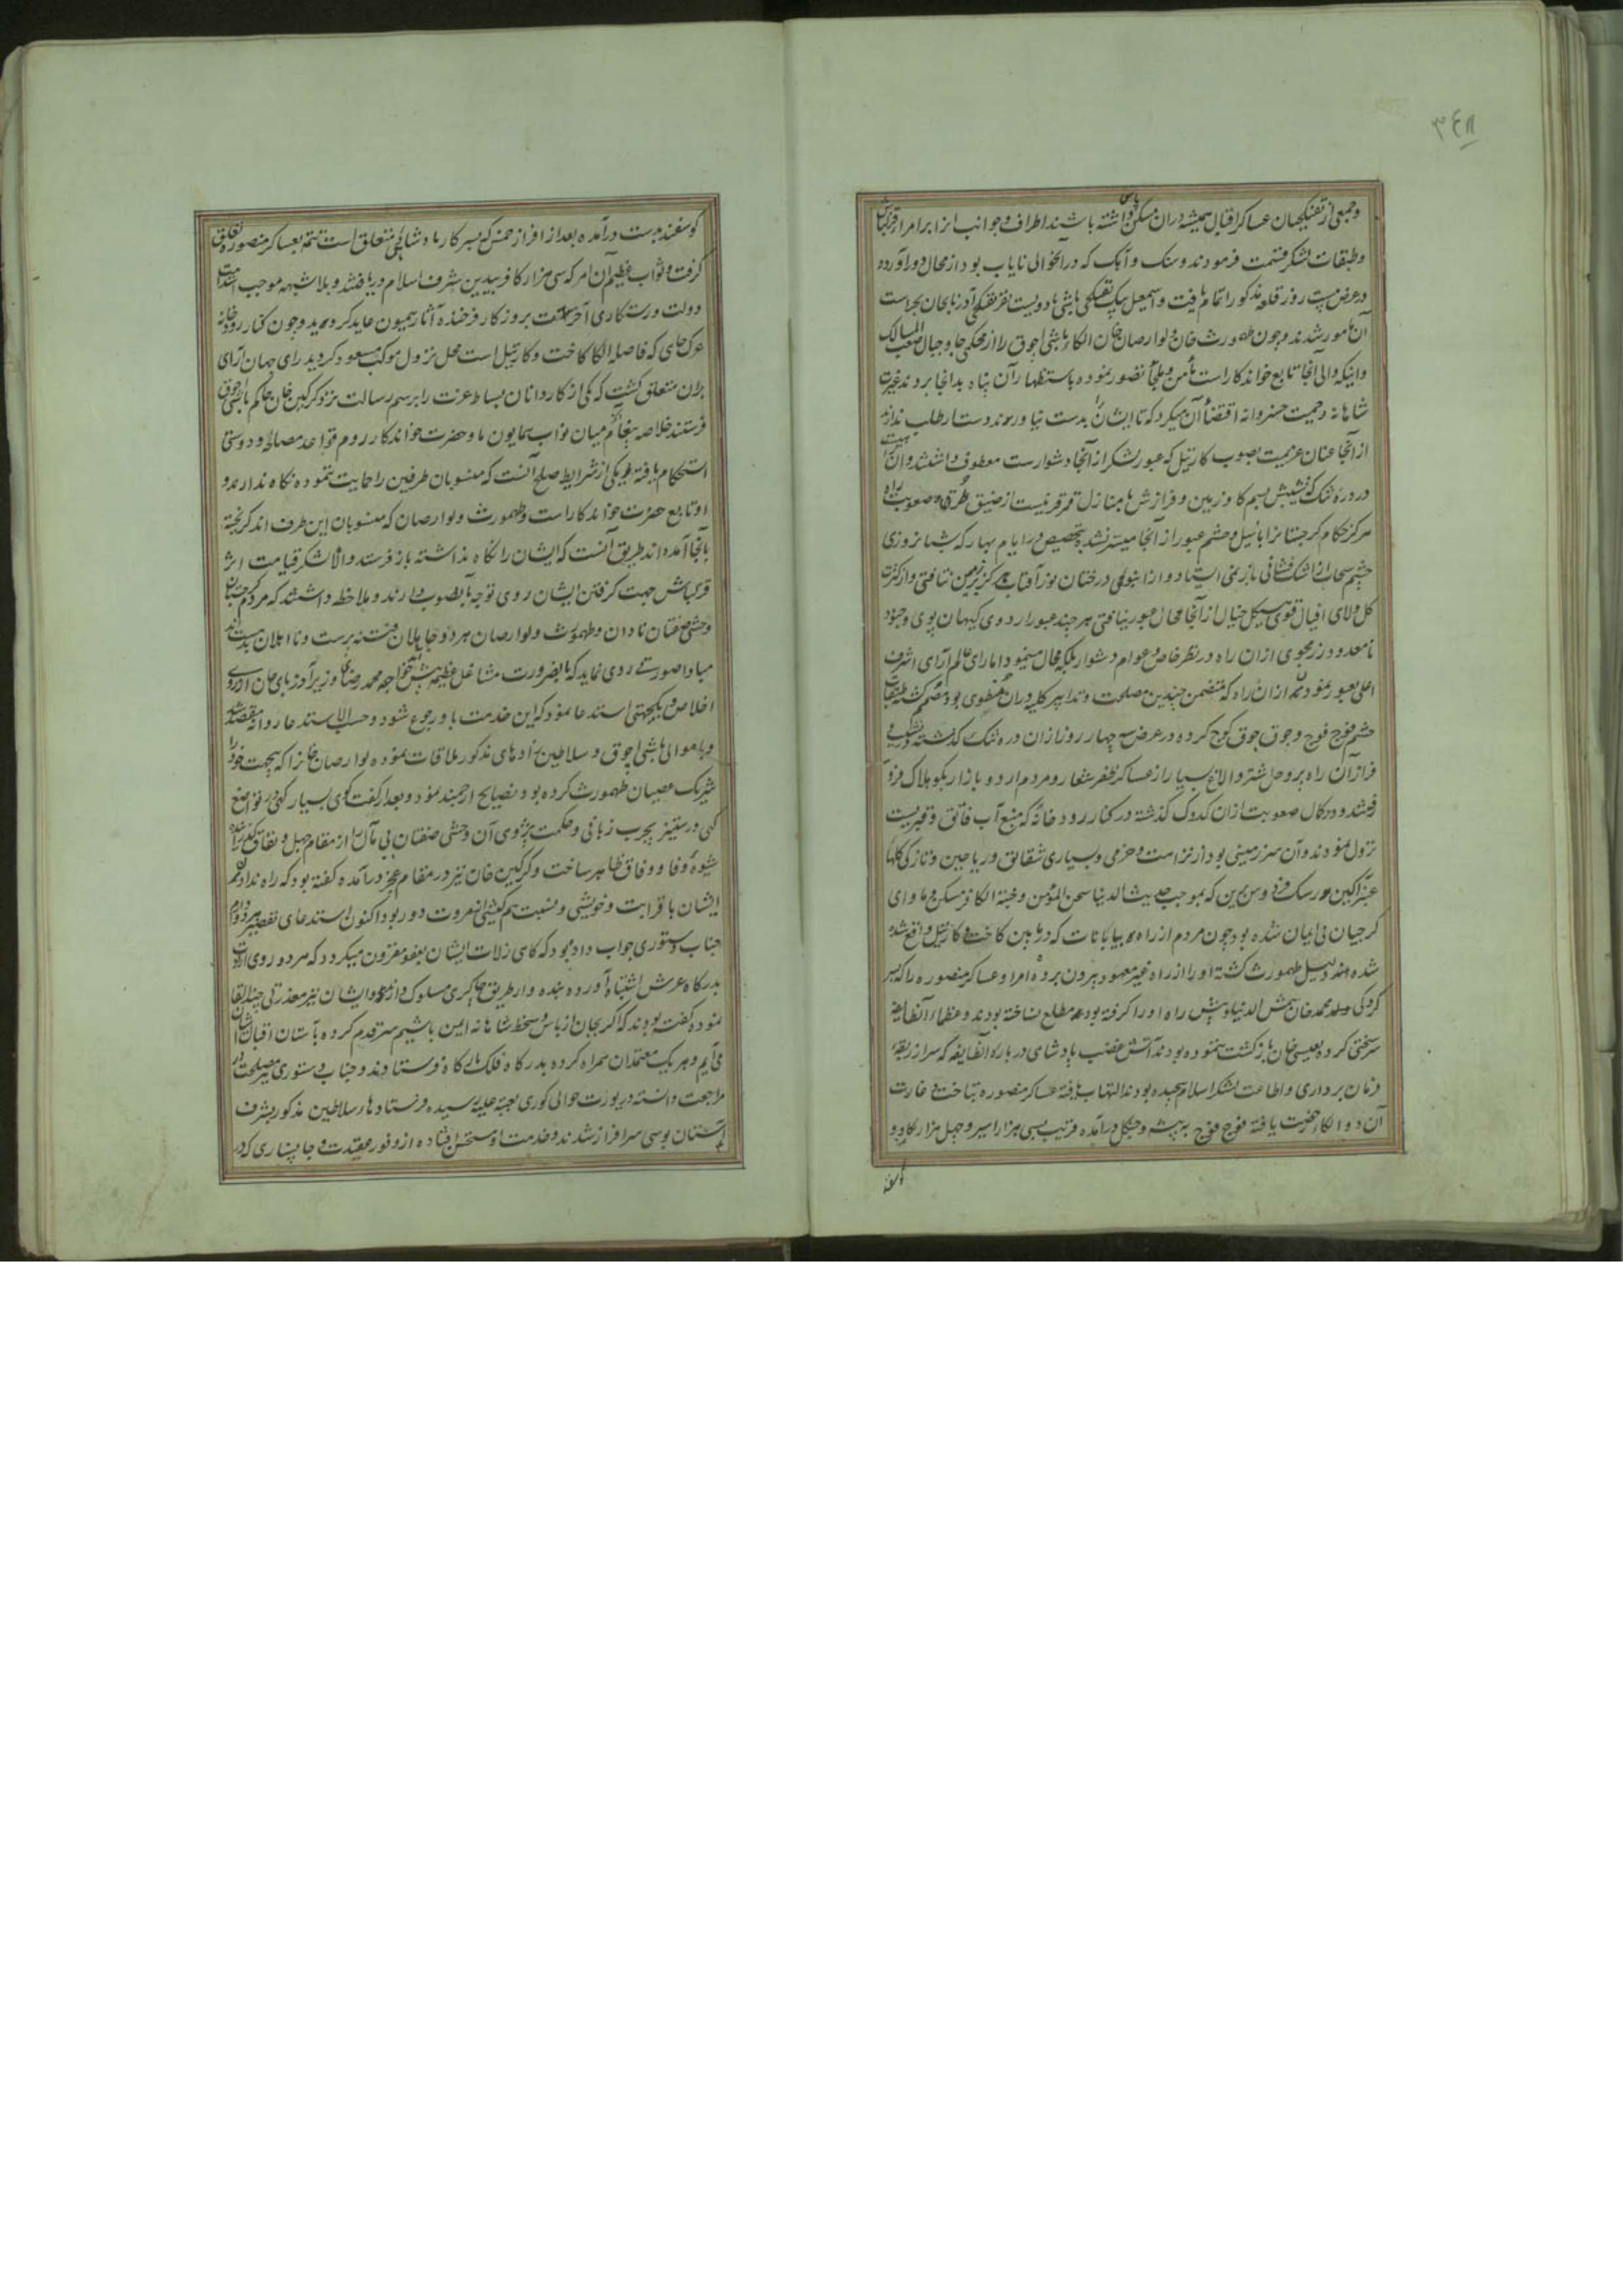 ۳۴۸
وجمعی از تفنگچیان عساکر اقبال همیشه دران مسکن پاس داشته باشند اطراف وجوانب انرا برامرا قزلباش
وطبقات لشکر قسمت فرمودند وسنک وآهک که درانحوالی نایاب بود از محال دور آورده
در عرض بیست روز قلعه مذکور اتمام یافت واسمعیل بیک تفنکچی باشی با دویست نفر تفنکچی آذربایجان بحراست
آن مامور شدند وچون طهمورث خان ولوارصاب خان الکاء باشی اچوق را از محکمی جا وجبال صعب المسالک
واینکه والی آنجا تابع خواندکار است مأمن وملجأ تصور نموده باستظهار آن پناه بدانجا بردند غیرت
شاهانه وحمیت خسروانه اقتضا آن میکرد که تا ایشان را بدست نیاورند دست از طلب ندارند
از آنجا عنان عزیمت بصوب کارتیل که عبور لشکر از آنجا دشوار است معطوف داشتند وآن
در دره تنک که نشیبش بسم کاو زمین وفرازش با منازل قمر قرینست از ضیق طرق وصعوبت راه
هرکز حکام کرجستانرا باخیل وحشم عبور از آنجا میسر نشده بتخصیص در ایام بهار که شبانروزی
چشم سحاب از اشک فشانی باز نمی ایستاد واز انبوهی درختان نور آفتاب هرکز بزمین نتافتی واز کثرت
کل ولای افیال قوی هیکل خیال از آنجا مجال عبور نیافتی هر چند عبور اردوی کیهان پوی وجنود
نامعدود رزمجوی ازان راه در نظر خاص وعوام دشوار بلکه محال مینمود اما رای عالم آرای اشرف
اعلی بعبور نمودن ازان راه که متضمن چندین مصلحت وتدابیر کلیه دران منطوی بود مصمم کشته طبقات
حشم فوج فوج وجوق جوق کوچ کرده در عرض سه چهار روز ازان دره تنک کذشته
فراز آن راه پر وحل شتر والاغ بسیار از عساکر ظفر شعار ومردم اردو بازار بکو هلاک فرو
رفتند ودر کمال صعوبت ازان کدوک کذشته در کنار رودخانه که منبع آب فاتق وقبریست
نزول نمودند وآن سرزمینی بود از نزاهت وخرمی وبسیاری شقایق وریاحین وتازکی کلها
عنبرآکین رشک فردوس برین که بموجب حدیث الدنیا سجن المؤمن وجنة الکافر مسکن وماوای
کرجیان بی ایمان شده بود چون مردم از راه بیابانات که در مابین کاخت وکارتیل واقع شده
شده بودند دلیل طهمورث کشته او را از راه غیر معهود بیرون برده امرا وعساکر منصوره را که بسر
کردکی محمد خان شمس الدینلو پیش راه او را کرفته بودند مطلع نساخته بودند وعظماء آنطایفه
سرسختی کرده بعیسی خان بازکشت ننموده بودند آتش غضب پادشاهی درباره آنطایفه که سر از ربقه
فرمان برداری واطاعت لشکر اسلام پیچیده بودند التهاب یافته عساکر منصوره بتاخت وغارت
آن دو الکا رخصت یافته فوج فوج به بیشه وجنکل درآمده قریب بسی هزار اسیر وچهل هزار کاو و
کوسفند
کوسفند بدست درآمده بعد از افراز خمس که بسرکار پادشاهی متعلق است تتمه بعساکر منصوره تعلق
کرفت وثواب عظیم آن امر که سی هزار کافر بیدین شرف اسلام دریافتند وبلا شبهه موجب امتداد مدت
دولت ورستکاری آخرتست بروزکار فرخنده آثار همیون عاید کردید وچون کنار رودخانه
عرک جای که فاصله الکا کاخت وکارتیل است محل نزول موکب مسعود کردید رای جهان آرای
بران متعلق کشت که یکی از کاردانان بساط عزت را برسم رسالت نزد کرکین خان حاکم باشی اچوق
فرستند خلاصه پیغام آنکه میان نواب همایون ما وحضرت خواندکار روم قواعد مصالحه ودوستی
استحکام یافته ویکی از شرایط صلح آنست که منسوبان طرفین را حمایت ننموده نکاه ندارند و
او تابع حضرت خواندکار است وطهمورث ولوارصاب که منسوبان این طرف اند کریخته
بانجا آمده اند طریق آنست که ایشان را نکاه نداشته باز فرستد والا لشکر قیامت اثر
قزلباش جهت کرفتن ایشان روی توجه بانصوب دارند وملاحظه داشتند که مردم کرجستان
وحشی صفتان نادان وطهمورث ولوارصاب هر دو جاهلان فتنه پرست ونااهلان بدمستند
مبادا صورتی روی نماید که بالضرورت مشاغل عظیمه پیش آید خواجه محمد رضای وزیر آذربایجان از روی
اخلاص ویکجهتی استدعا نمود که این خدمت باو رجوع شود وحسب الاستدعا روانه مقصد شد
وباموالی باشی اچوق وسلاطین زادهای مذکور ملاقات نموده لوارصاب خانرا که بجهت خود را
شریک عصیان طهمورث کرده بود نصایح ارجمند نمود وبعد از کفت کوی بسیار کهی در تواضع
کهی در ستیز بچرب زبانی وحکمت پژوهی آن وحشی صفتان بی مآل را از مقام جهل ونفاق
شیوه وفا ووفاق ظاهر ساخت وکرکین خان نیز در مقام عجز درآمده کفته بود که راه ندادن
ایشان با قرابت وخویشی ونسبت هم کیشی از مروت دور بود اکنون استدعای تقصیر هر دو دارم
جناب دستوری جواب داده بود که کاهی زلات ایشان بعفو مقرون میکردد که هر دو روی ارادت
بدرکاه عرش اشتباه آورده بنده وار طریق چاکری مسلوک دارند وایشان نیز معذرتی چند القا
نموده کفته بودند که اکر بجان از باس وسخط شاهانه ایمن باشیم سر قدم کرده بآستان اقبال آشیان
می آیم وهر یک معتمدان همراه کرده بدرکاه فلک بارکاه فرستادند وجناب دستوری مصلحت در
مراجعت دانسته در یورت حوالی کوری بعتبه علیه رسیده فرستادهاء سلاطین مذکور بشرف
آستان بوسی سرافراز شدند وخدمت او مستحسن افتاده از وفور عقیدت وجانسپاری که در